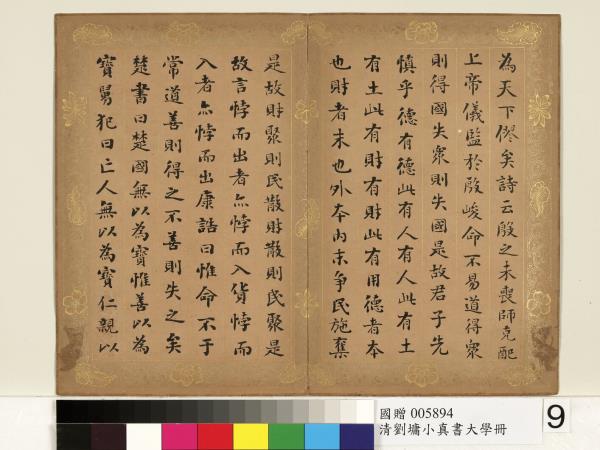 為天下僇矣詩云殷之未喪師克配
上帝儀監於殷峻命不易道得眾
則得國失眾則失國是故君子先
慎乎德有德此有人有人此有土
有土此有財有財此有用德者本
也財者末也外本內末爭民施奪
是故財聚則民散財散則民聚是
故言悖而出者亦悖而入貨悖而
入者亦悖而出康誥曰惟命不于
常道善則得之不善則失之矣
楚書曰楚國無以為寶惟善以為
寶舅犯曰亡人無以為寶仁親以
國贈 005894
清劉墉小真書大學冊
9